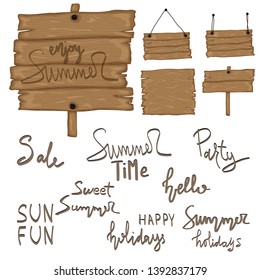 enjoy
Summer
Sale
Summer
TIME
Party
Sweet
Summer
hello
SUN
FUN
HAPPY
holidays
Summer
holidays
shutterstock.com · 1392837179